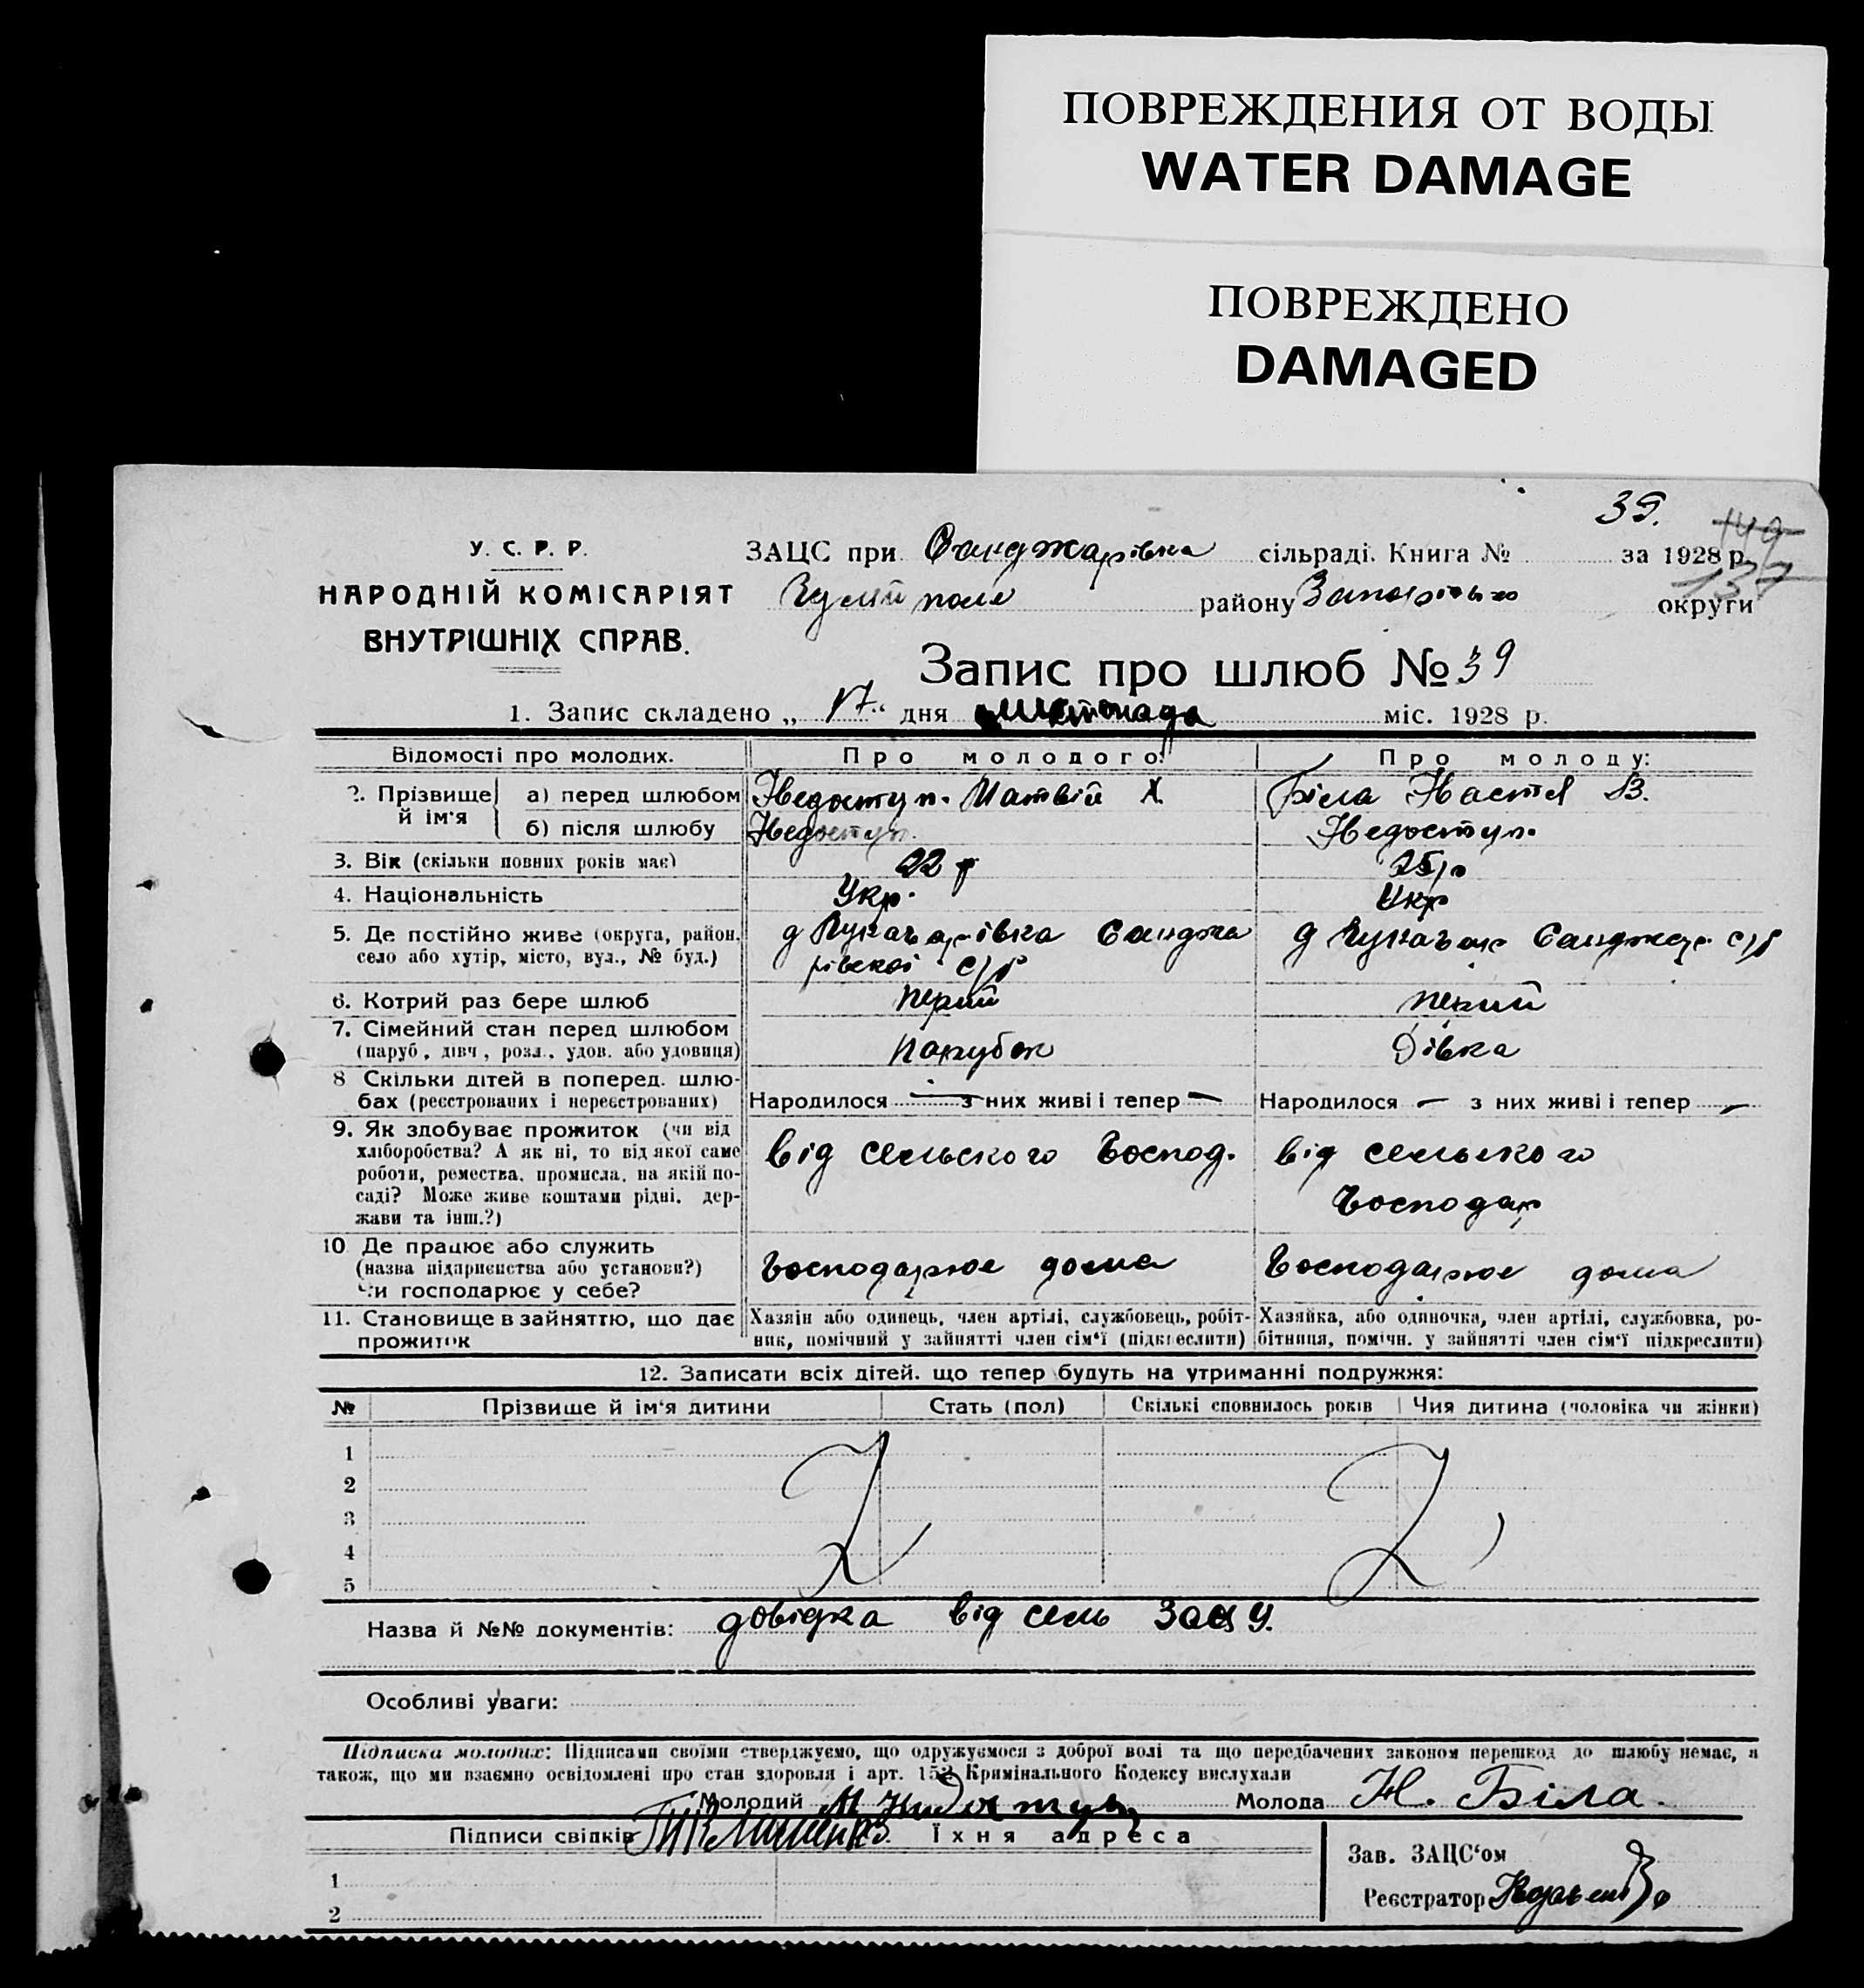 ПОВРЕЖДЕНИЯ ОТ ВОДЫ
WATER DAMAGE
ПОВРЕЖДЕНО
DAMAGED
39.
149
137
У. С. Р. Р.
НАРОДНІЙ КОМІСАРІЯТ
ВНУТРІШНІХ СПРАВ.
ЗАЦС при Санджарівка сільраді. Книга № за 1928 р.
району округи
Запис про шлюб № 39
1. Запис складено „ 17 “ дня листопада міс. 1928 р.
Відомості про молодих. Про молодого: Про молоду:
2. Прізвище й ім'я а) перед шлюбом Недоступ. Матвій Х. Біла Настя В.
б) після шлюбу Недоступ. Недоступ.
3. Вік (скільки повних років має) 22 р 25 р
4. Національність Укр. Укр
5. Де постійно живе (округа, район, село або хутір, місто, вул., № буд.) Санджарівскої с/р Санджар. с/р
6. Котрий раз бере шлюб перший
7. Сімейний стан перед шлюбом (паруб., дівч., розл., удов. або удовиця) парубок Дівка
8 Скільки дітей в поперед. шлюбах (реєстрованих і нереєстрованих) Народилося — з них живі і тепер — Народилося — з них живі і тепер —
9. Як здобуває прожиток (чи від хліборобства? А як ні, то від якої саме роботи, ремества, промисла, на якій посаді? Може живе коштами рідні, держави та інш.?) від сельского господ. від сельского господар
10 Де працює або служить (назва підприєнства або установи?) Чи господарює у себе? господарює дома господарює дома
11. Становище в зайняттю, що дає прожиток Хазяін або одинець, член артілі, службовець, робітник, помічний у зайнятті член сім'ї (підкреслити) Хазяйка, або одиночка, член артілі, службовка, робітниця, помічн. у зайнятті член сім'ї підкреслити)
12. Записати всіх дітей. що тепер будуть на утриманні подружжя:
№ Прізвище й ім'я дитини Стать (пол) Скількі сповнилось років Чия дитина (чоловіка чи жінки)
1
2
3
4
5
Назва й №№ документів: довідка від сель ЗАЦСУ.
Особливі уваги:
Підписка молодих: Підписами своїми стверджуємо, що одружуємося з доброї волі та що передбачених законом перешкод до шлюбу немає, а
також, що ми взаємно освідомлені про стан здоровля і арт. 152 Кримінального Кодексу вислухали
Молодий М. Молода Н. Біла.
Підписи свідків Їхня адреса
1
2
Зав. ЗАЦС'ом
Реєстратор